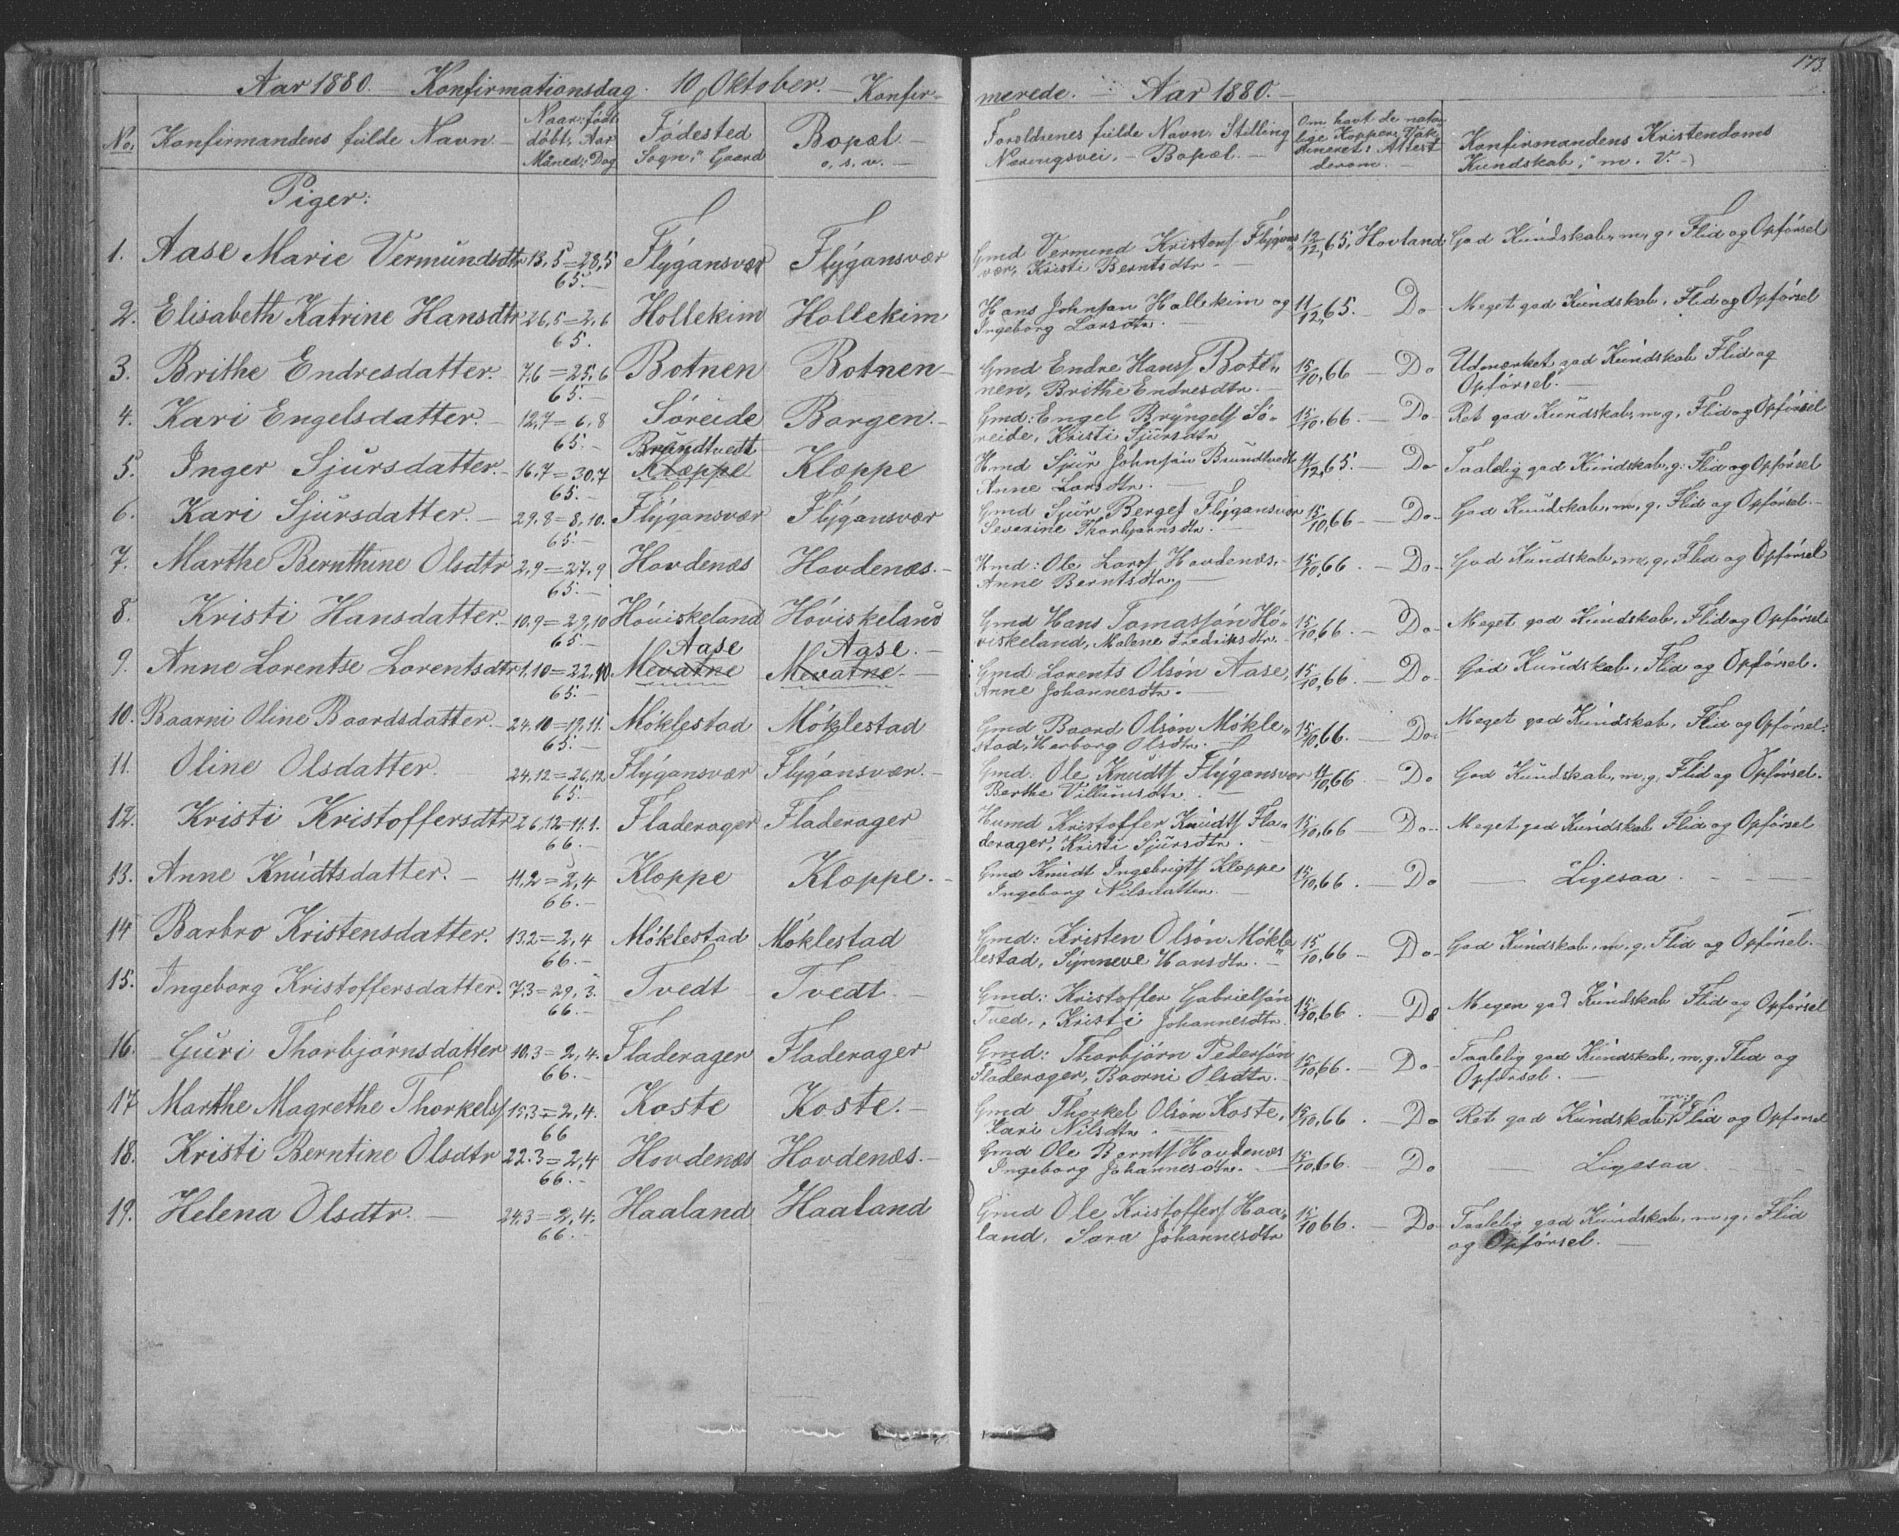 173.
Aar 1880. — Konfirmationsdag. 10, Oktober. — Konfir-
merede. — Aar 1880. —
No. Konfirmandens fulde Navn — Naar: født døbt, Aar Maned: Dag Fødested Sogn, " Gaard Bopæl — o, s, v. —
Forældrenes fulde Navn, Stilling Næringsvei, — Bopæl. — Om havt de natur lige Kopper Attest derom. Konfirmandens Kristendoms Kundskab, " m. V. —
Piger:
1. Aase Marie Vermundsdtr 13,5=28,5 65.— Flygansvær Flygansvær
Gmd Vermund Kristens Flygans vær, Kristi Berntsdtr. — 12/12,65, Hovland. God Kundskab, m, g, Flid og Opførsel
2. Elisabeth Katrine Hansdtr 26,5=2,6 65. Hollekim Hollekim
Hans Johnsøn Hollekim og Ingeborg Larsdtr. — 11/12,65. — Do — Meget god Kundskab, Flid og Opførsel
3. Brithe Endresdatter. 7,6=25,6 65.— Botnen Botnen —
Gmd Endre Hans Bot„ nen, Brithe Endresdtr. — 15/10,66 — Do Udmærket god Kundskab Flid og Opførsel. —
4. Kari Engelsdatter. — 12,7=6,8 65.— Søreide Borgen. —
Gmd: Engel Bryngels Sø= reide, Kristi Sjursdtr 15/10,66. — Do — Ret god Kundskab, m, g, Flid og Opførsel
5. Inger Sjursdatter. — 16,7=30,7 65.— Brundtvedt Kleppe Klæppe
Hmd Sjur Johnsøn Brundtvedt Anne Larsdtr. — 11/12,65. Do — Taalelig god Kundskab, g, Flid og Opførsel
6. Kari Sjursdatter. — 29,8=8,10. 65.— Flygansvær Flygansvær
Gmd Sjur Berges Flygansvær Severine Thorbjørnsdtr. — 15/10,66 — Do — God Kundskab, m, g, Flid og Opførsel. —
7. Marthe Bernthine Olsdtr 2,9=27,9 65.— Hovdenæs Hovdenæs. —
Hmd: Ole Lars Hovdenæs, — Anne Berntsdtr. — 15/10,66. — Do — God Kundskab, m, g, Flid og Opførsel
8. Kristi Hansdatter. — 10,9=29,10 65.— Høviskeland Høviskeland
Gmd Hans Tomassøn Hø= viskeland, Malene Fredriksdtr. — 15/10,66. — Do — Meget god Kundskab, Flid og Opførsel
9. Anne Lorentse Lorentsdtr 1,10=22,10 65.— Aase Mevatne Aase. — Mevatne. —
Gmd Lorents Olsøn Aase, Anne Johannesdtr. — 15/10,66. — Do — God Kundskab, Flid og Opførsel.
10. Baarni Oline Baardsdatter. — 24,10=19,11. 65.— Møklestad Møklestad
Gmd Baard Olsøn Møkle„ stad, Herborg Olsdtr. 15/10,66. — Do — Meget god Kundskab, Flid og Opførsel.
11. Oline Olsdatter. 24,12=26,12 65.— Flygansvær Flygansvær. —
Gmd. Ole Knudts Flygansvær Berthe Villumsdtr. — 11/10,66 — Do God Kundskab, m, g, Flid og Opførsel.
12. Kristi Kristoffersdtr 26,12=11,1. 66.— Fladerager Fladerager
Humd Kristoffer Knudts Fla= derager, Kristi Sjursdtr. — 15/10,66 — Do — Meget god Kundskab Flid og Opførsel
13. Anne Knudtsdatter. — 11,2=2,4 66.— Klæppe Klæppe. —
Gmd Knudt Ingebrigts Kleppe Ingeborg Nilsdatter. — 15/10,66. — Do — Ligesaa. —
14 Barbro Kristensdatter. 13,2=2,4 66.— Møklestad Møklestad
Gmd: Kristen Olsøn Møkle lestad, Synneve Hansdtr. — 15/10,66 — Do — God Kundskab, m, g, Flid og Opførsel. —
15. Ingeborg Kristoffersdatter. 7,3=29,3. 66.— Tvedt Tvedt —
Gmd: Kristoffer Gabrielsøn Tved, Kristi Johannesdtr. 15/10,66. — Do Megen god Kundskab Flid og Opførsel
16. Guri Thorbjørnsdatter 10,3=2,4. 66.— Fladerager Fladerager
Gmd: Thorbjørn Pedersøn Fladerager, Baarni Olsdtr. — 15/10,66. — Do — Taalelig god Kundskab, m, g, Flid og Opførsel. —
17 Marthe Magrethe Thorkels. 15,3=2,4. 66 Koste Koste. —
Gmd Thorkel Olsøn Koste, Kari Nilsdtr. — 15/10,66. — Do Ret god Kundskab, m, g, Flid og Opførsel
18. Kristi Berntine Olsdtr 22.3=2,4 66.— Hovdenæs Hovdenæs. —
Gmd Ole Bernts Hovdenæs Ingeborg Johannesdtr. — 15/10,66. — Do — Ligesaa. —
19. Helena Olsdtr. — 24,3=2,4. 66.— Haaland Haaland
Gmd Ole Kristoffers Haa„ land, Sara Johannesdtr 15/10 66. — Do — Taalelig god Kundskab, m, g, Flid og Opførsel. —